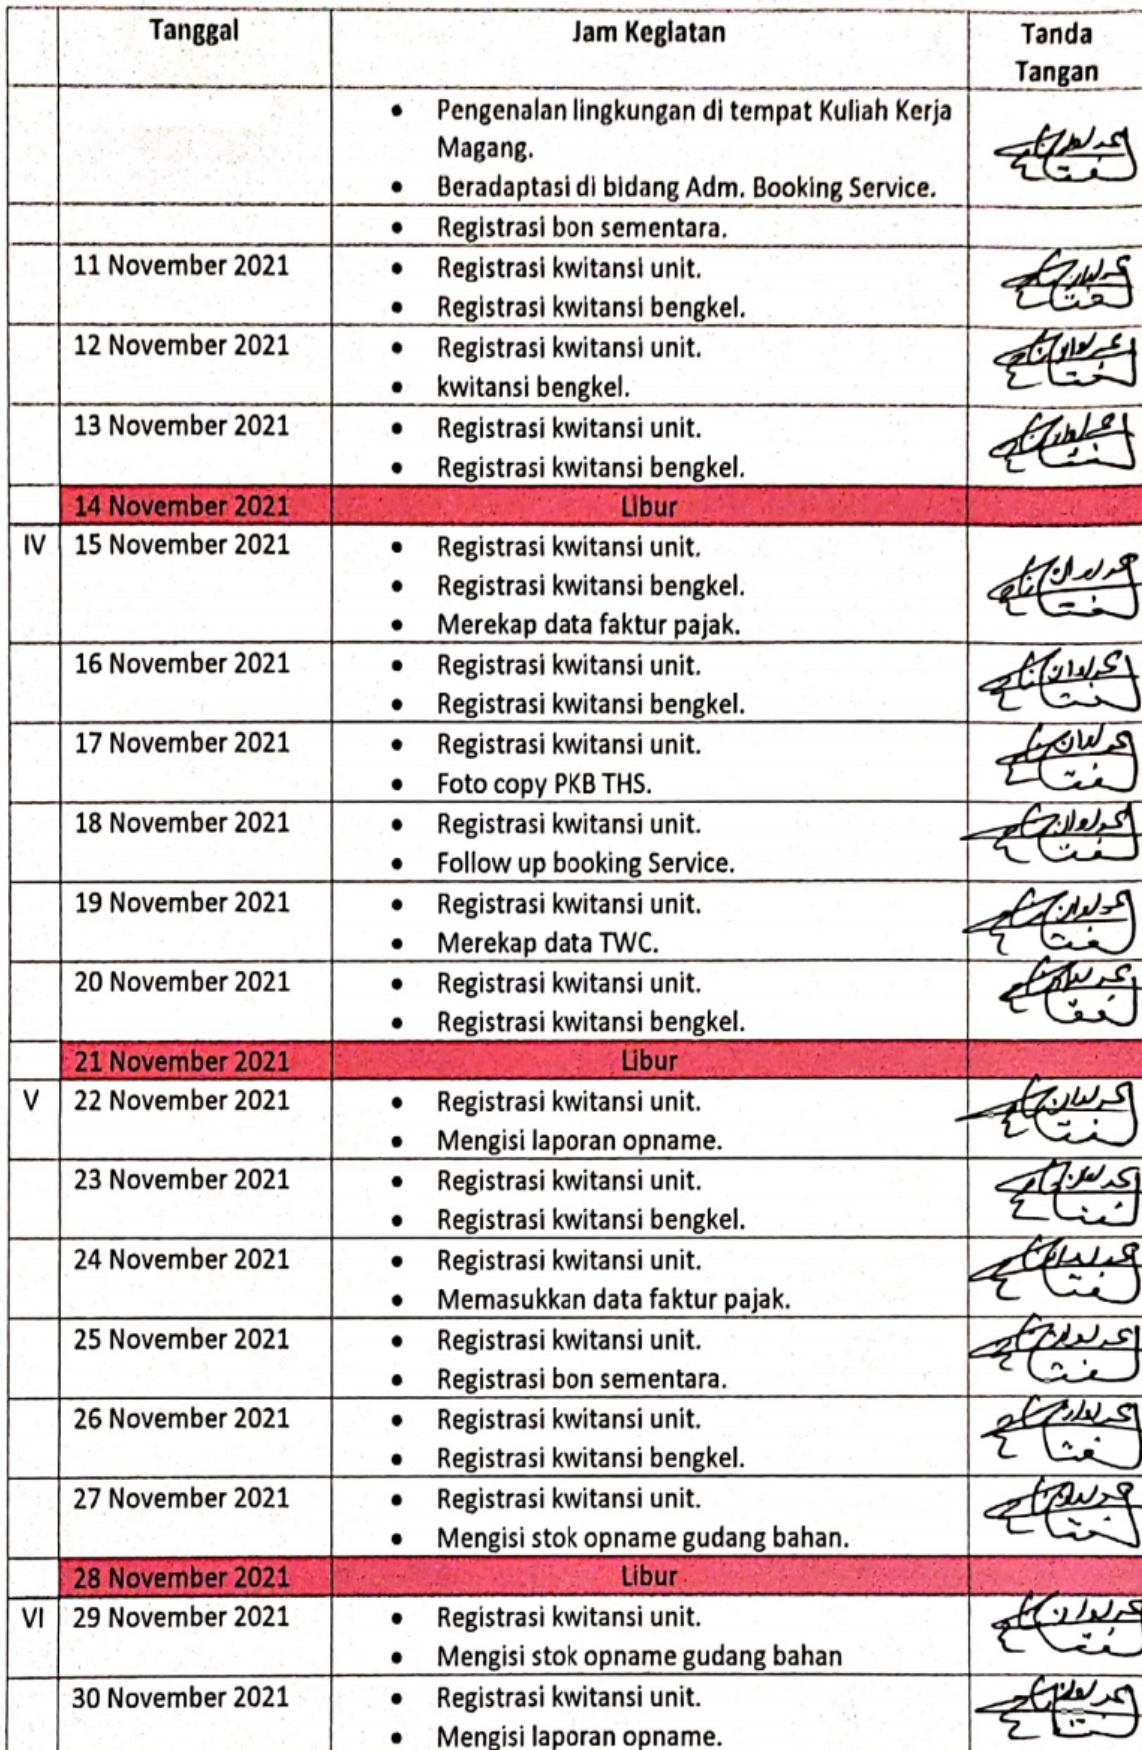 Tanggal Jam Kegiatan Tanda
Tangan
• Pengenalan lingkungan di tempat Kuliah Kerja
Magang.
• Beradaptasi di bidang Adm. Booking Service.
• Registrasi bon sementara.
11 November 2021 • Registrasi kwitansi unit.
• Registrasi kwitansi bengkel.
12 November 2021 • Registrasi kwitansi unit.
• kwitansi bengkel.
13 November 2021 • Registrasi kwitansi unit.
• Registrasi kwitansi bengkel.
14 November 2021 Libur
IV 15 November 2021 • Registrasi kwitansi unit.
• Registrasi kwitansi bengkel.
• Merekap data faktur pajak.
16 November 2021 • Registrasi kwitansi unit.
• Registrasi kwitansi bengkel.
17 November 2021 • Registrasi kwitansi unit.
• Foto copy PKB THS.
18 November 2021 • Registrasi kwitansi unit.
• Follow up booking Service.
19 November 2021 • Registrasi kwitansi unit.
• Merekap data TWC.
20 November 2021 • Registrasi kwitansi unit.
• Registrasi kwitansi bengkel.
21 November 2021 Libur
V 22 November 2021 • Registrasi kwitansi unit.
• Mengisi laporan opname.
23 November 2021 • Registrasi kwitansi unit.
• Registrasi kwitansi bengkel.
24 November 2021 • Registrasi kwitansi unit.
• Memasukkan data faktur pajak.
25 November 2021 • Registrasi kwitansi unit.
• Registrasi bon sementara.
26 November 2021 • Registrasi kwitansi unit.
• Registrasi kwitansi bengkel.
27 November 2021 • Registrasi kwitansi unit.
• Mengisi stok opname gudang bahan.
28 November 2021 Libur
VI 29 November 2021 • Registrasi kwitansi unit.
• Mengisi stok opname gudang bahan
30 November 2021 • Registrasi kwitansi unit.
• Mengisi laporan opname.